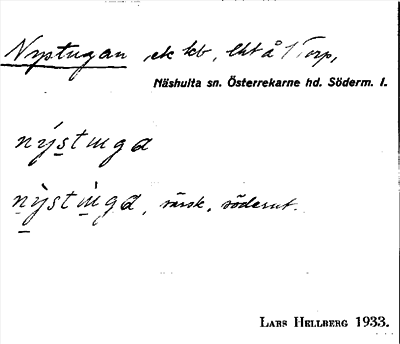 Nystugan ek kb, lht å 1 Torp,
Näshulta sn. Österrekarne hd. Söderm. l.
nýstuga
nỳstùga, särsk. söderut.
Lars Hellberg 1933.